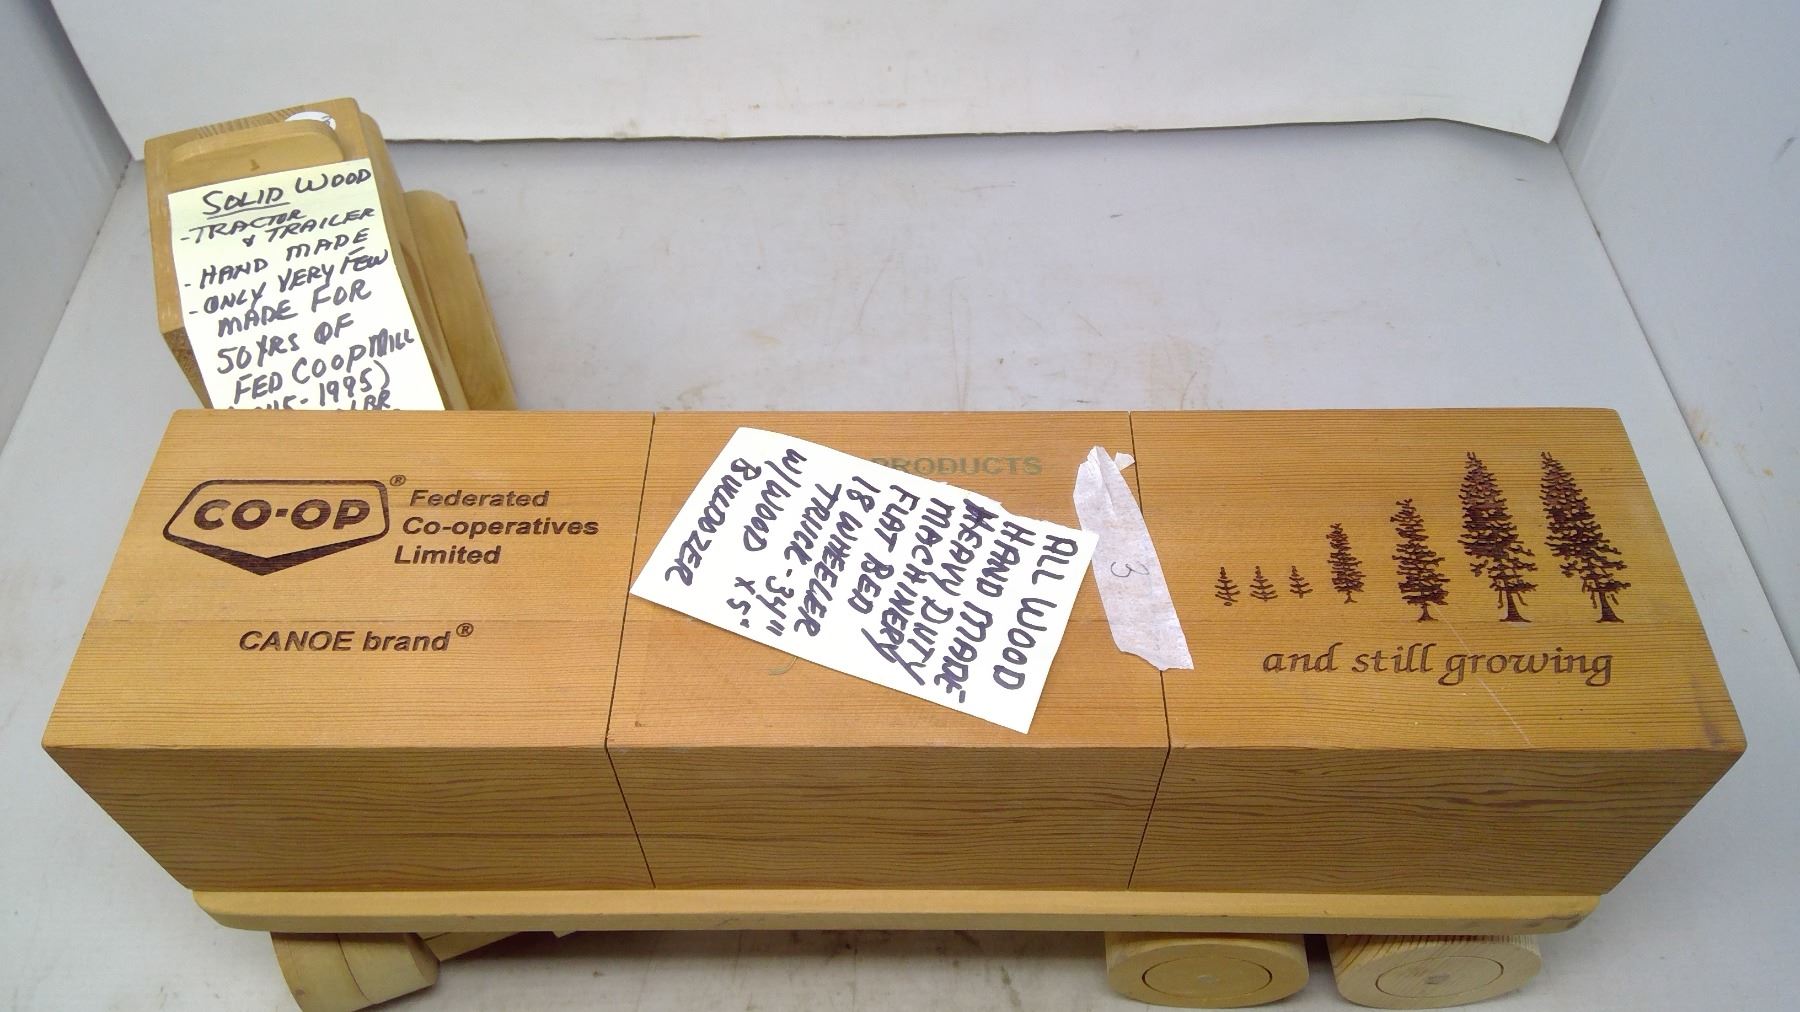 SOLID WOOD
- TRACTOR
& TRAILER
- HAND MADE
- ONLY VERY FEW
MADE FOR
50 YRS OF
FED COOP MILL
- 1995)
CO-OP® Federated
Co-operatives
Limited
CANOE brand®
PRODUCTS
ALL WOOD
HAND MADE
HEAVY DUTY
MACHINERY
FLAT BED
18 WHEELER
TRUCK - 34"
W/WOOD X 5"
BULLDOZER
3
and still growing